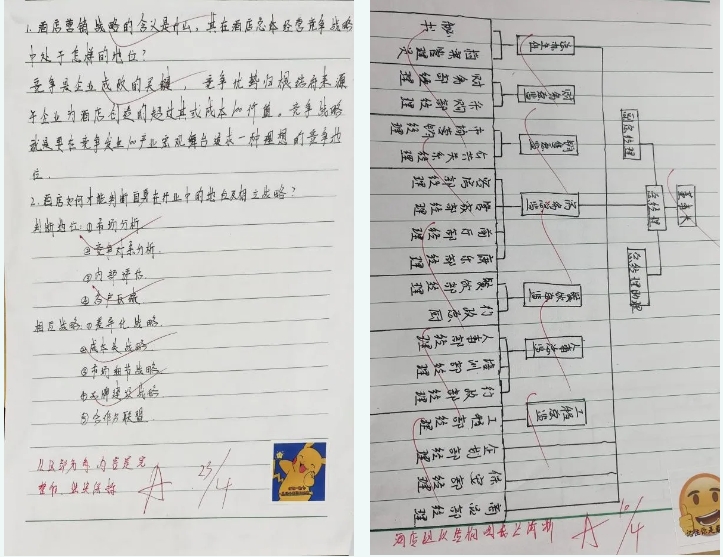 1.酒店营销战略的含义是什么,其在酒店总体经营竞争战略
中处于怎样的地位?
竞争是企业成败的关键,竞争优势归根结底来源
于企业为酒店创造的超过其成本的价值。竞争战略
就是要在竞争发生的产业宏观舞台追求一种理想的竞争地
位.
2.酒店如何才能判断自身在行业中的地位及相应战略?
判断地位:①市场分析.
②竞争对手分析.
③内部评估
④客户反馈
相应战略:①差异化战略.
②成本美战略
③市场细节战略
④品牌建设战略
⑤合作与联盟.
A
23/4
董事长
总经理
副总经理
总经理助理
财务总监
销售总监
房务总监
餐饮总监
人事总监
工程总监
秘书
档案管理员
财务部经理
采购部经理
市场营销部经理
公共关系部经理
客房部经理
前厅部经理
康乐部经理
餐饮部经理
行政总厨
人事部经理
培训部经理
行政部经理
工程部经理
企划部经理
保安部经理
商品部经理
酒店组织结构图
A